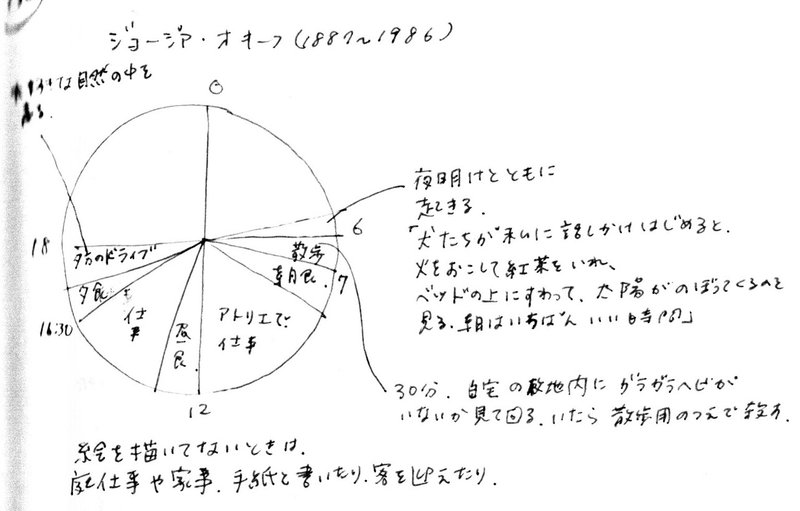 ジョージア・オキーフ(1887〜1986)
好きな自然の中を
走る.
0
夜明けとともに
起きる.
「犬たちが私に話しかけはじめると、
火をおこして紅茶をいれ、
ベッドの上にすわって、太陽がのぼってくるのを
見る.朝はいちばんいい時間」
6
18
夕方のドライブ
散歩
朝食.
7
夕食
16:30
仕事
昼食
アトリエで
仕事
12
30分.自宅の敷地内にガラガラヘビが
いないか見て回る.いたら散歩用のつえで殺す.
絵を描いてないときは.
庭仕事や家事.手紙を書いたり.客を迎えたり.